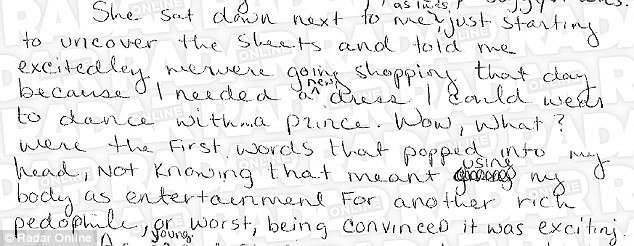 as lids,
She sat down next to me, just starting
to uncover the sheets and told me
excitedley wewere going shopping that day
because I needed a new dress I could wear
to dance with a prince. Wow, what?
were the first words that popped into my
head, Not knowing that meant using my
body as entertainment For another rich
pedophile, or worst, being convinced it was exciting.
young
© Radar Online
RADAR ONLINE